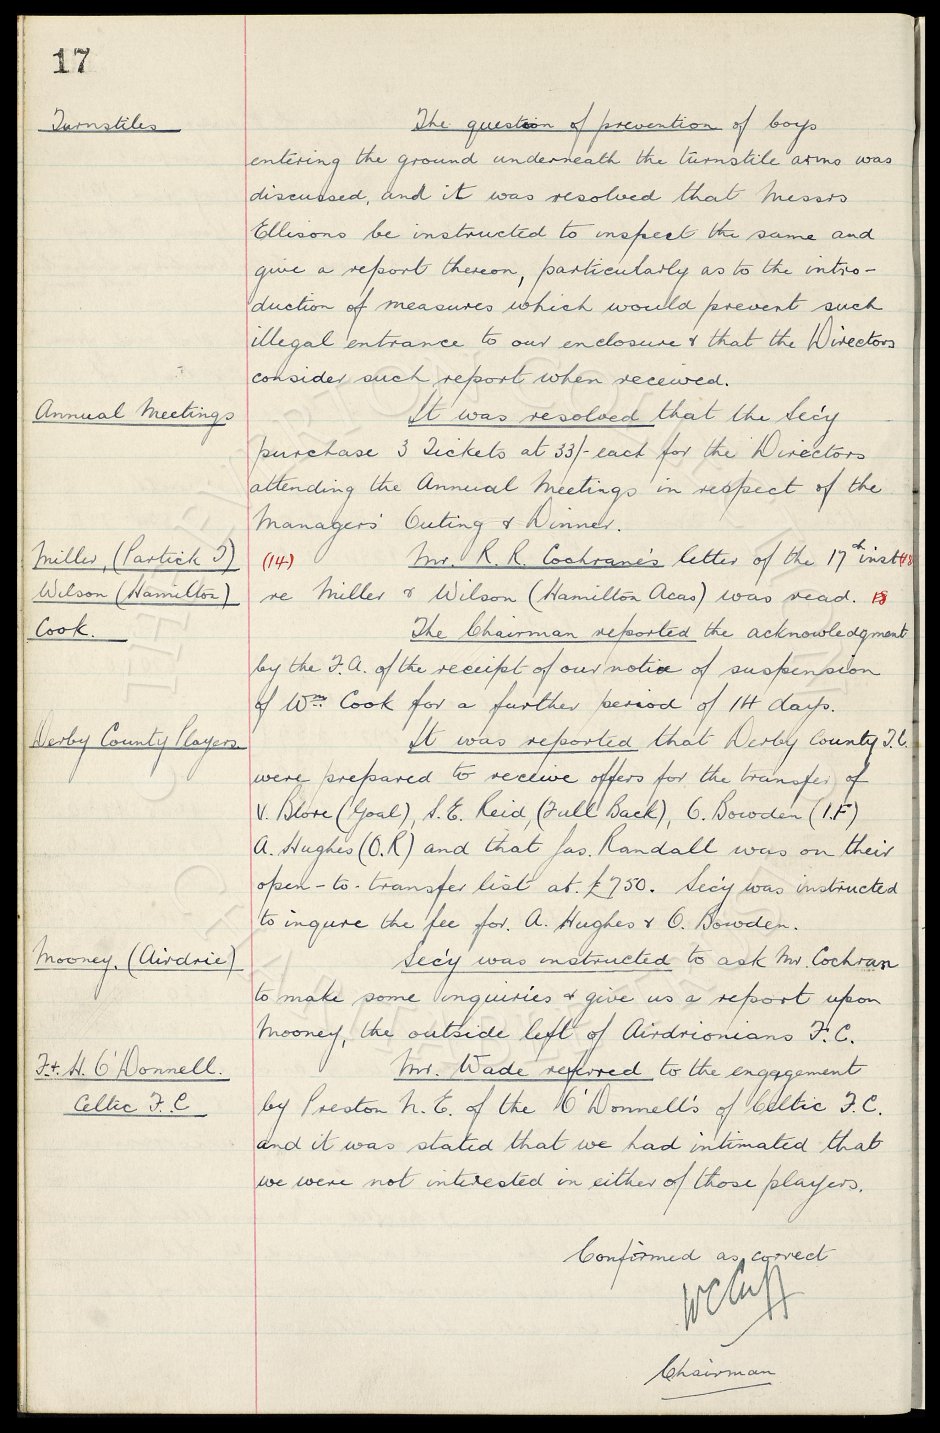 17
Turnstiles The question of prevention of boys
entering the ground underneath the turnstile arms was
discussed, and it was resolved that Messrs
Ellisons be instructed to inspect the same and
give a report thereon, particularly as to the intro-
duction of measures which would prevent such
illegal entrance to our enclosure & that the Directors
consider such report when received.
Annual Meetings It was resolved that the Sec'y
purchase 3 Tickets at 33/- each for the Directors
attending the Annual Meetings in respect of the
Managers' Outing & Dinner.
Miller, (Partick T) (14) Mr. R. R. Cochrane's letter of the 17th inst
Wilson (Hamilton) re Miller & Wilson (Hamilton Acas) was read.
Cook. The Chairman reported the acknowledgment
by the F.A. of the receipt of our notice of suspension
of Wm. Cook for a further period of 14 days.
Derby County Players It was reported that Derby County F.C.
were prepared to receive offers for the transfer of
V. Blore (Goal), S. E. Reid, (Full Back), O. Bowden (I.F)
A. Hughes (O.R) and that Jas. Randall was on their
open-to-transfer list at £750. Sec'y was instructed
to inqure the fee for A. Hughes & O. Bowden.
Mooney. (Airdrie) Sec'y was instructed to ask Mr. Cochran
to make some inquiries & give us a report upon
Mooney, the outside left of Airdrionians F.C.
F. & H. O'Donnell. Mr. Wade referred to the engagement
Celtic F.C by Preston N. E. of the O'Donnell's of Celtic F.C.
and it was stated that we had intimated that
we were not interested in either of those players.
Confirmed as correct
WC Cuff
Chairman